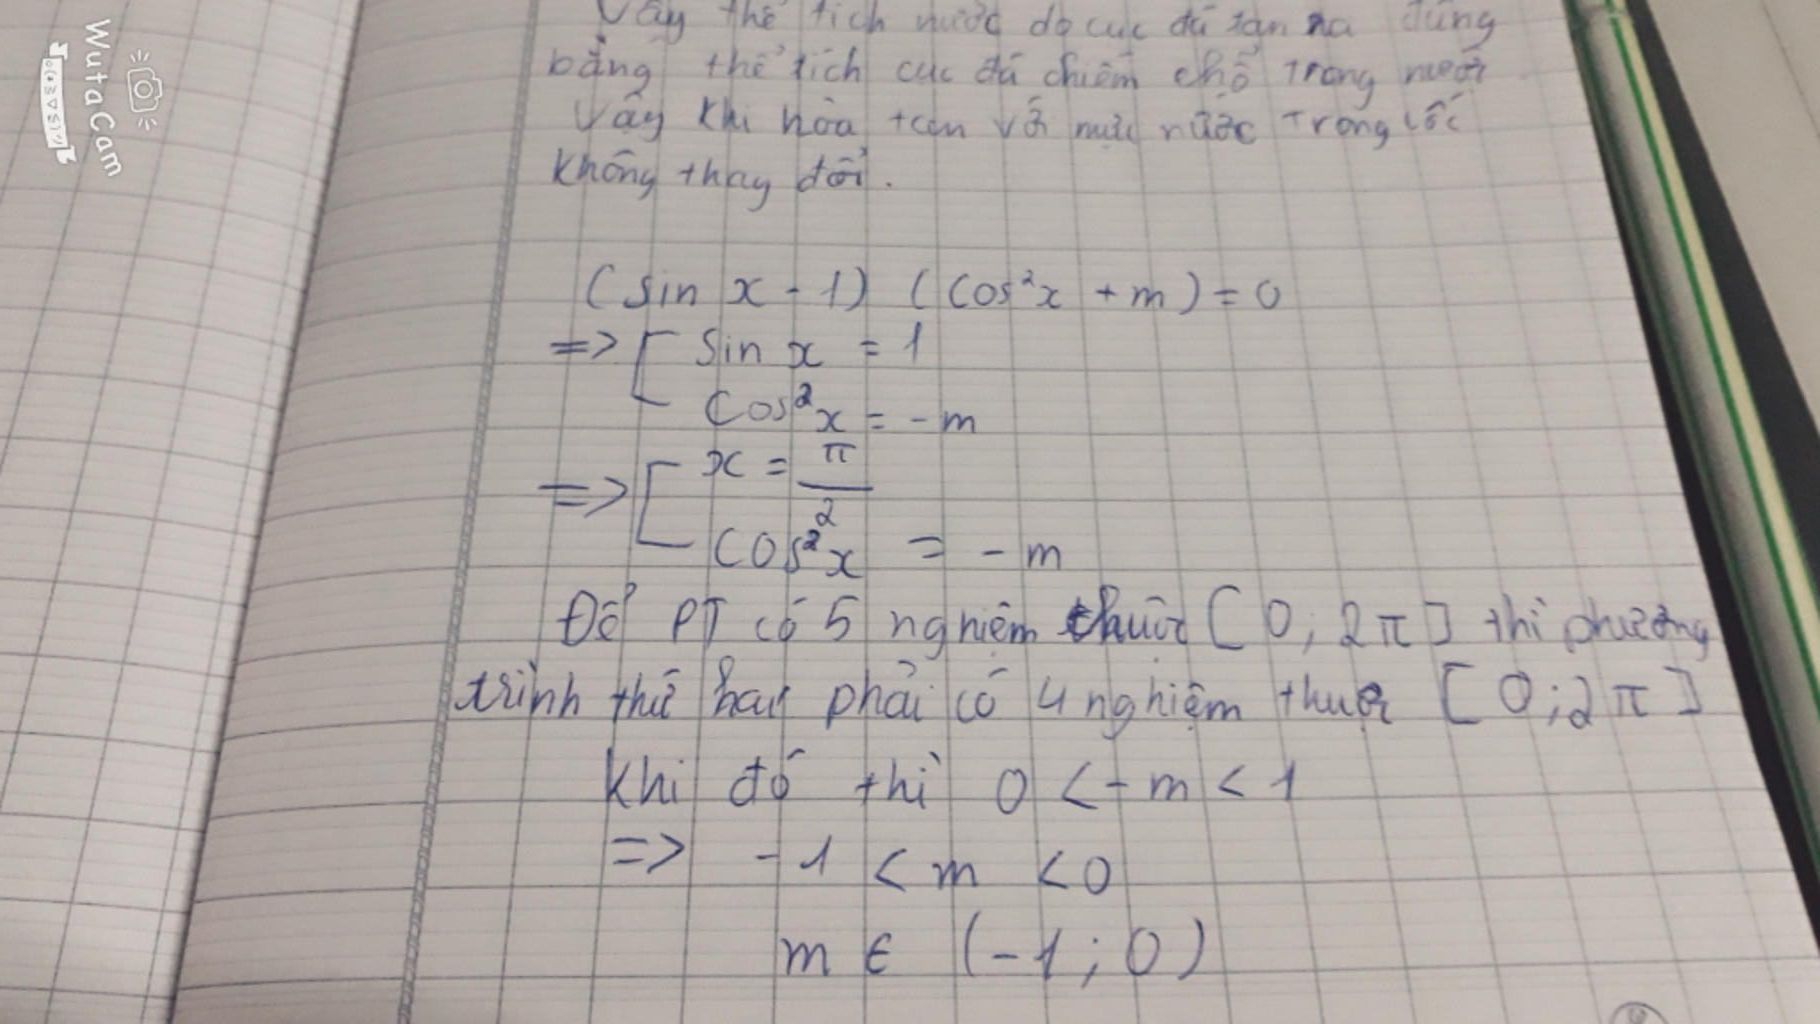 Vậy thể tích nước do cục đá tan ra đúng
bằng thể tích cục đá chiếm chỗ trong nước
Vậy khi hòa tan vã mực nước trong cốc
không thay đổi.
(sin x - 1) (cos²x + m) = 0
=> [ sin x = 1
cos²x = -m
=> [ x = π/2
cos²x = -m
Để PT có 5 nghiệm thuộc [0; 2π] thì phương
trình thứ hai phải có 4 nghiệm thuộc [0; 2π]
khi đó thì 0 < -m < 1
=> -1 < m < 0
m ∈ (-1; 0)
WutaCam